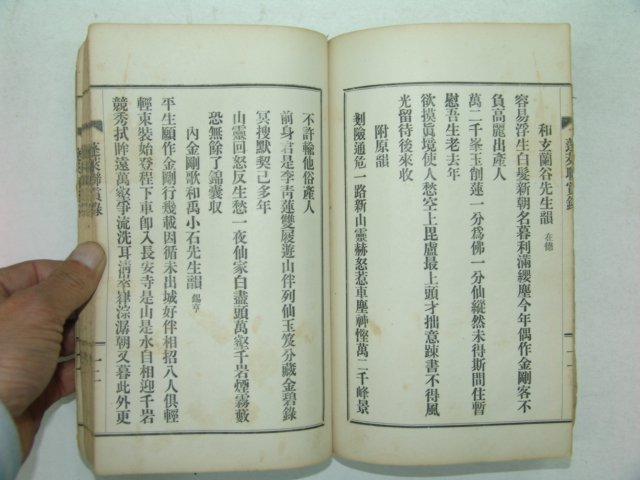 和玄蘭谷先生韻 在德
容易浮生白髮新朝名暮利滿纓塵今年偶作金剛客不
負高麗出產人
萬二千峯玉削蓮一分爲佛一分仙縱然未得斯間住暫
慰吾生老去年
欲摸眞境使人愁空上毘盧最上頭才拙意踈書不得風
光留待後來收
附原韻
剗險通危一路新山靈赫怒惹車塵神慳萬二千峰景
不許輸他俗產人
前身君是李青蓮雙屐遊山伴列仙玉笈分藏金碧錄
冥搜默契已多年
山靈回怒反生愁一夜仙家白盡頭萬壑千岩煙霧藪
恐無餘了錦囊收
內金剛歌和禹小石先生韻 錫亨
平生願作金剛行幾載因循未出城好伴相招八人俱輕
輕束裝始登程下車卽入長安寺是山是水自相迎千岩
競秀拭眸遠萬壑爭流洗耳淸崒嵂淙潺朝又暮此外更
蓬萊聯賞錄
十二